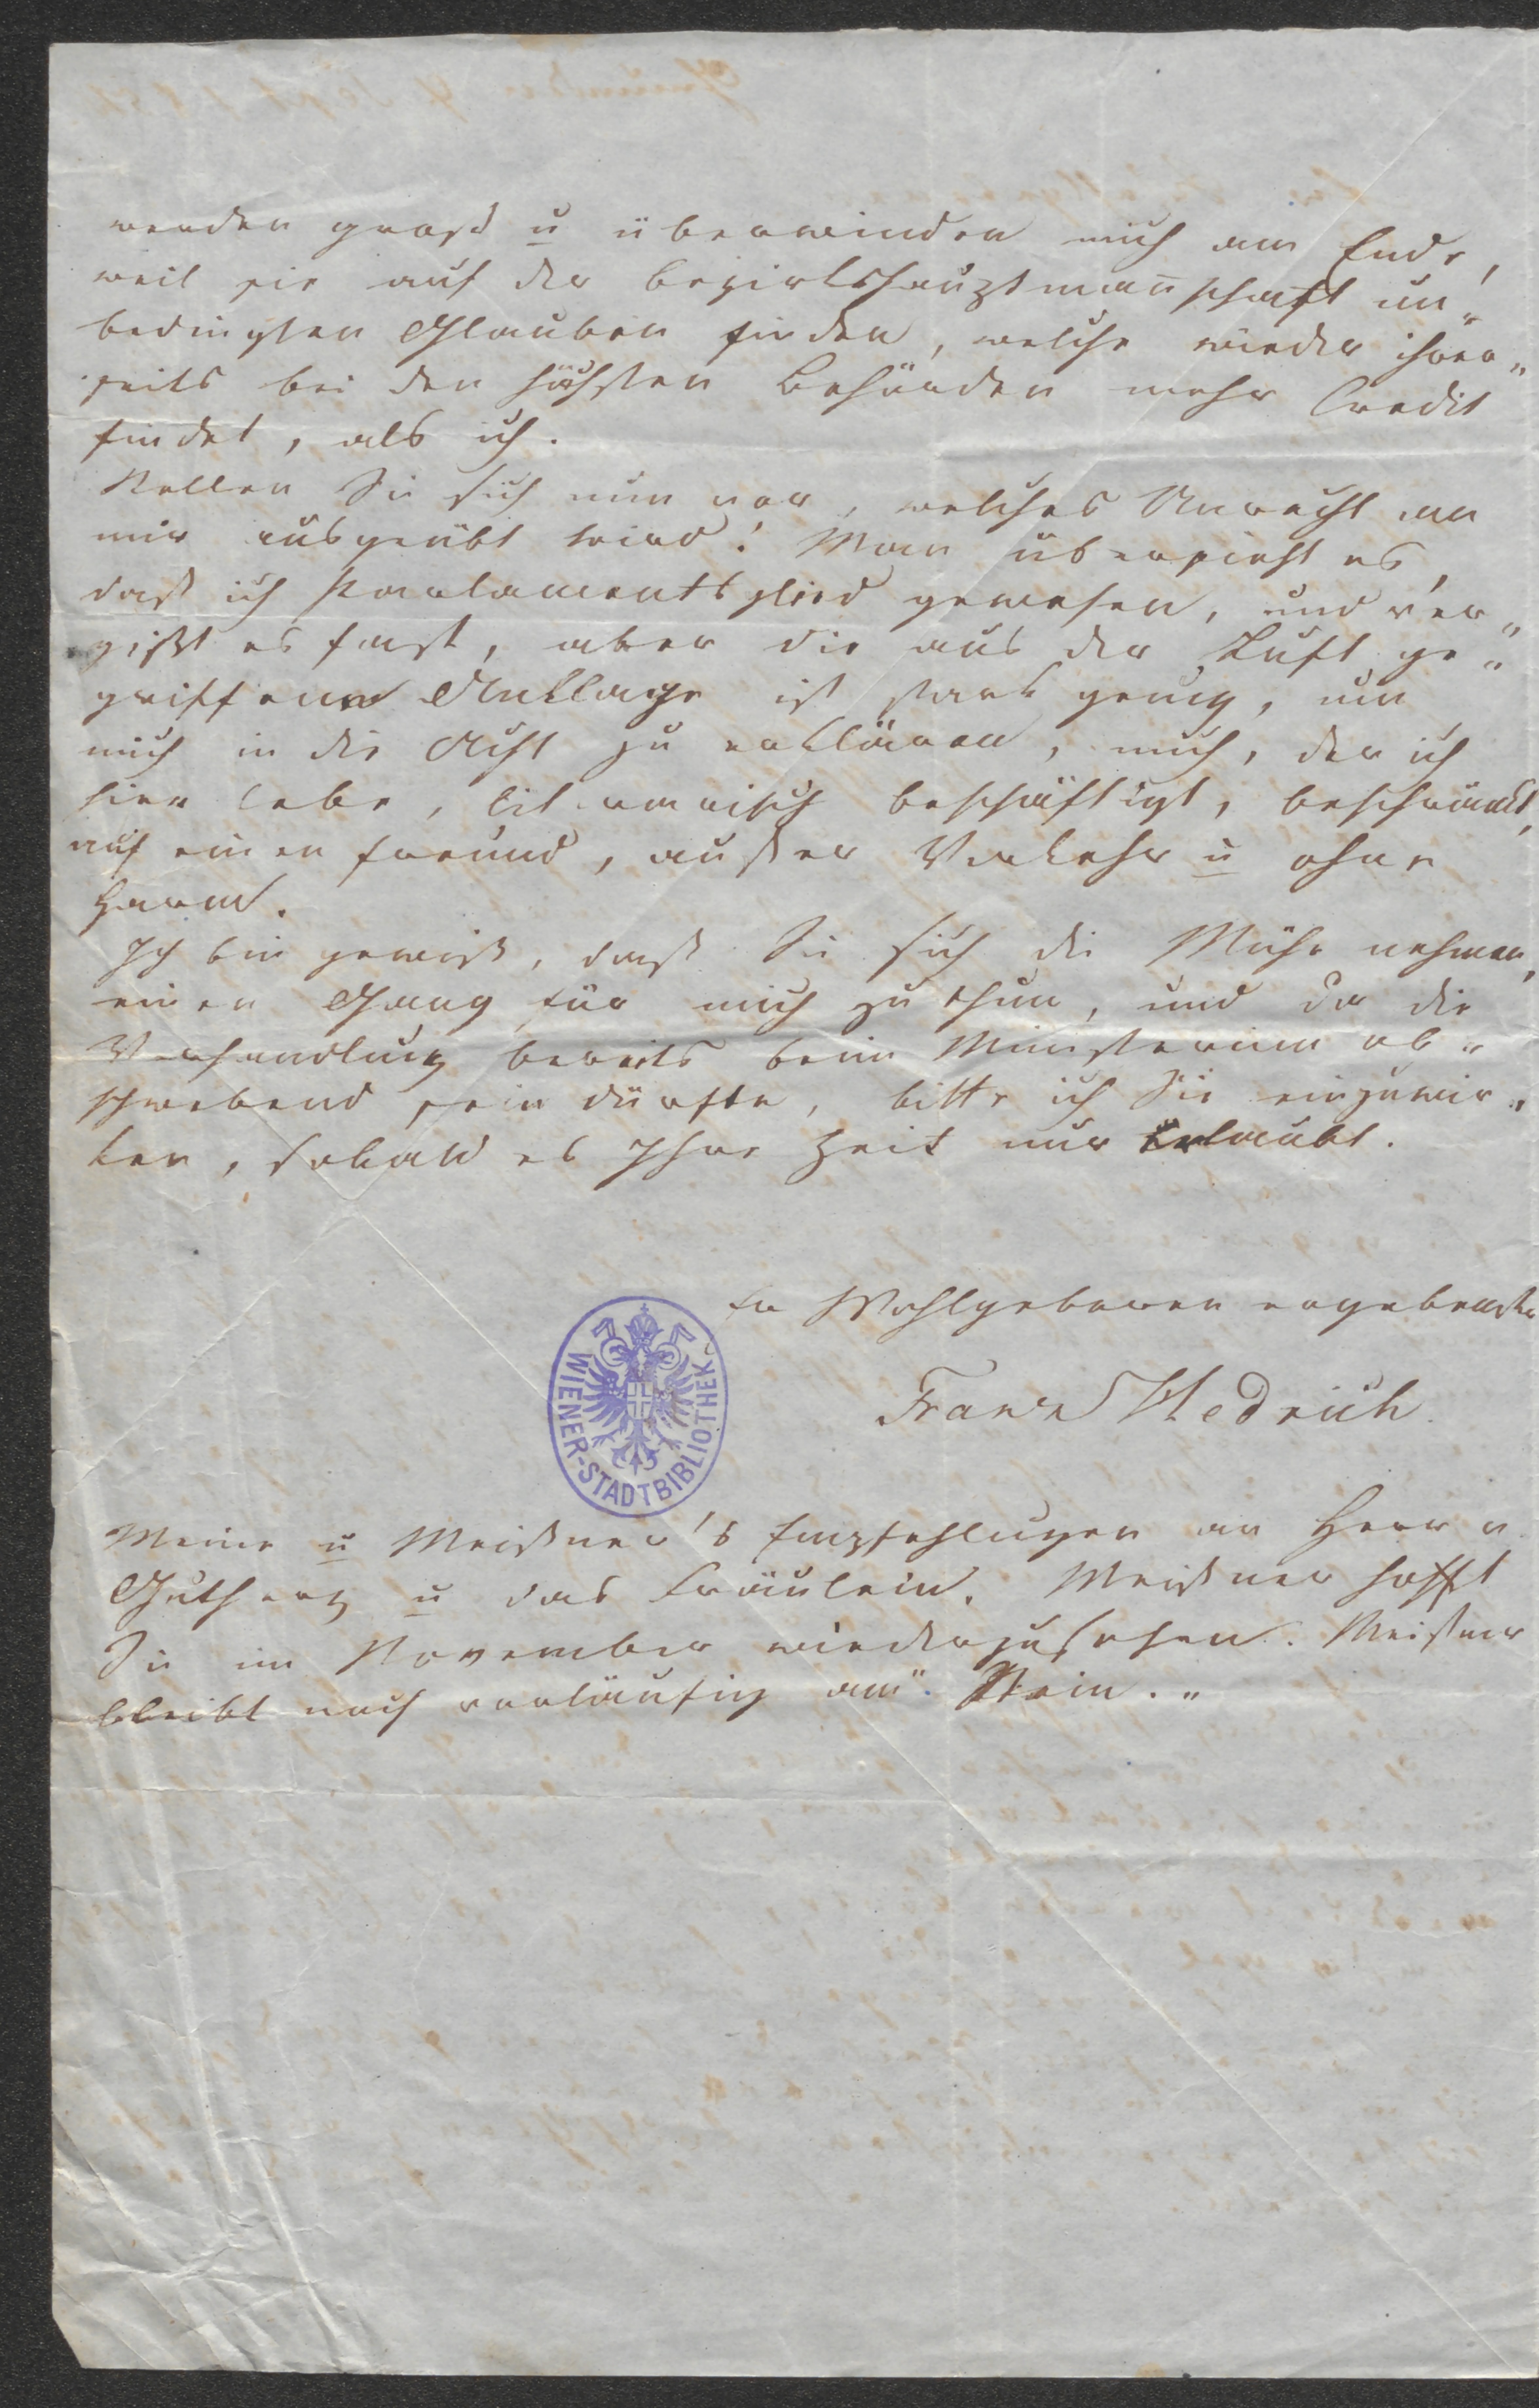 werden groß u überwinden mich am Ende,
weil sie auf der Bezirkshauptman̄schaft un„
bedingten Glauben finden, welche wieder ihrer„
seits bei den höchsten Behörden mehr Credit
findet, als ich.
Stellen Sie sich nun vor, welches Unrecht an
mir ausgeübt wird! Man übersieht es,
daß ich Parlamentsglied gewesen, und ver„
gißt es fast, aber die aus der Luft ge„
griffene Anklage ist stark genug, um
mich in die Acht zu erklären, mich, der ich
hier lebe, literarisch beschäftigt, beschränkt,
auf einen Freund, außer Verkehr u ohne
Harm.
Ich bin gewiß, daß Sie sich die Mühe nehmen,
einen Gang für mich zu thun, und da die
Verhandlung bereits beim Ministerium ob„
schwebend sein dürfte, bitte ich Sie einzuwir„
ken, sobald es Ihre Zeit nur erlaubt.
Ew Wohlgeboren ergebenster
Franz Hedrich.
WIENER-STADTBIBLIOTHEK
Meine u Meißner's Empfehlungen an Herrn
Gutherz u das Fräulein. Meißner hofft
Sie im November wiederzusehen. Meißner
bleibt noch vorläufig am „Stein.„